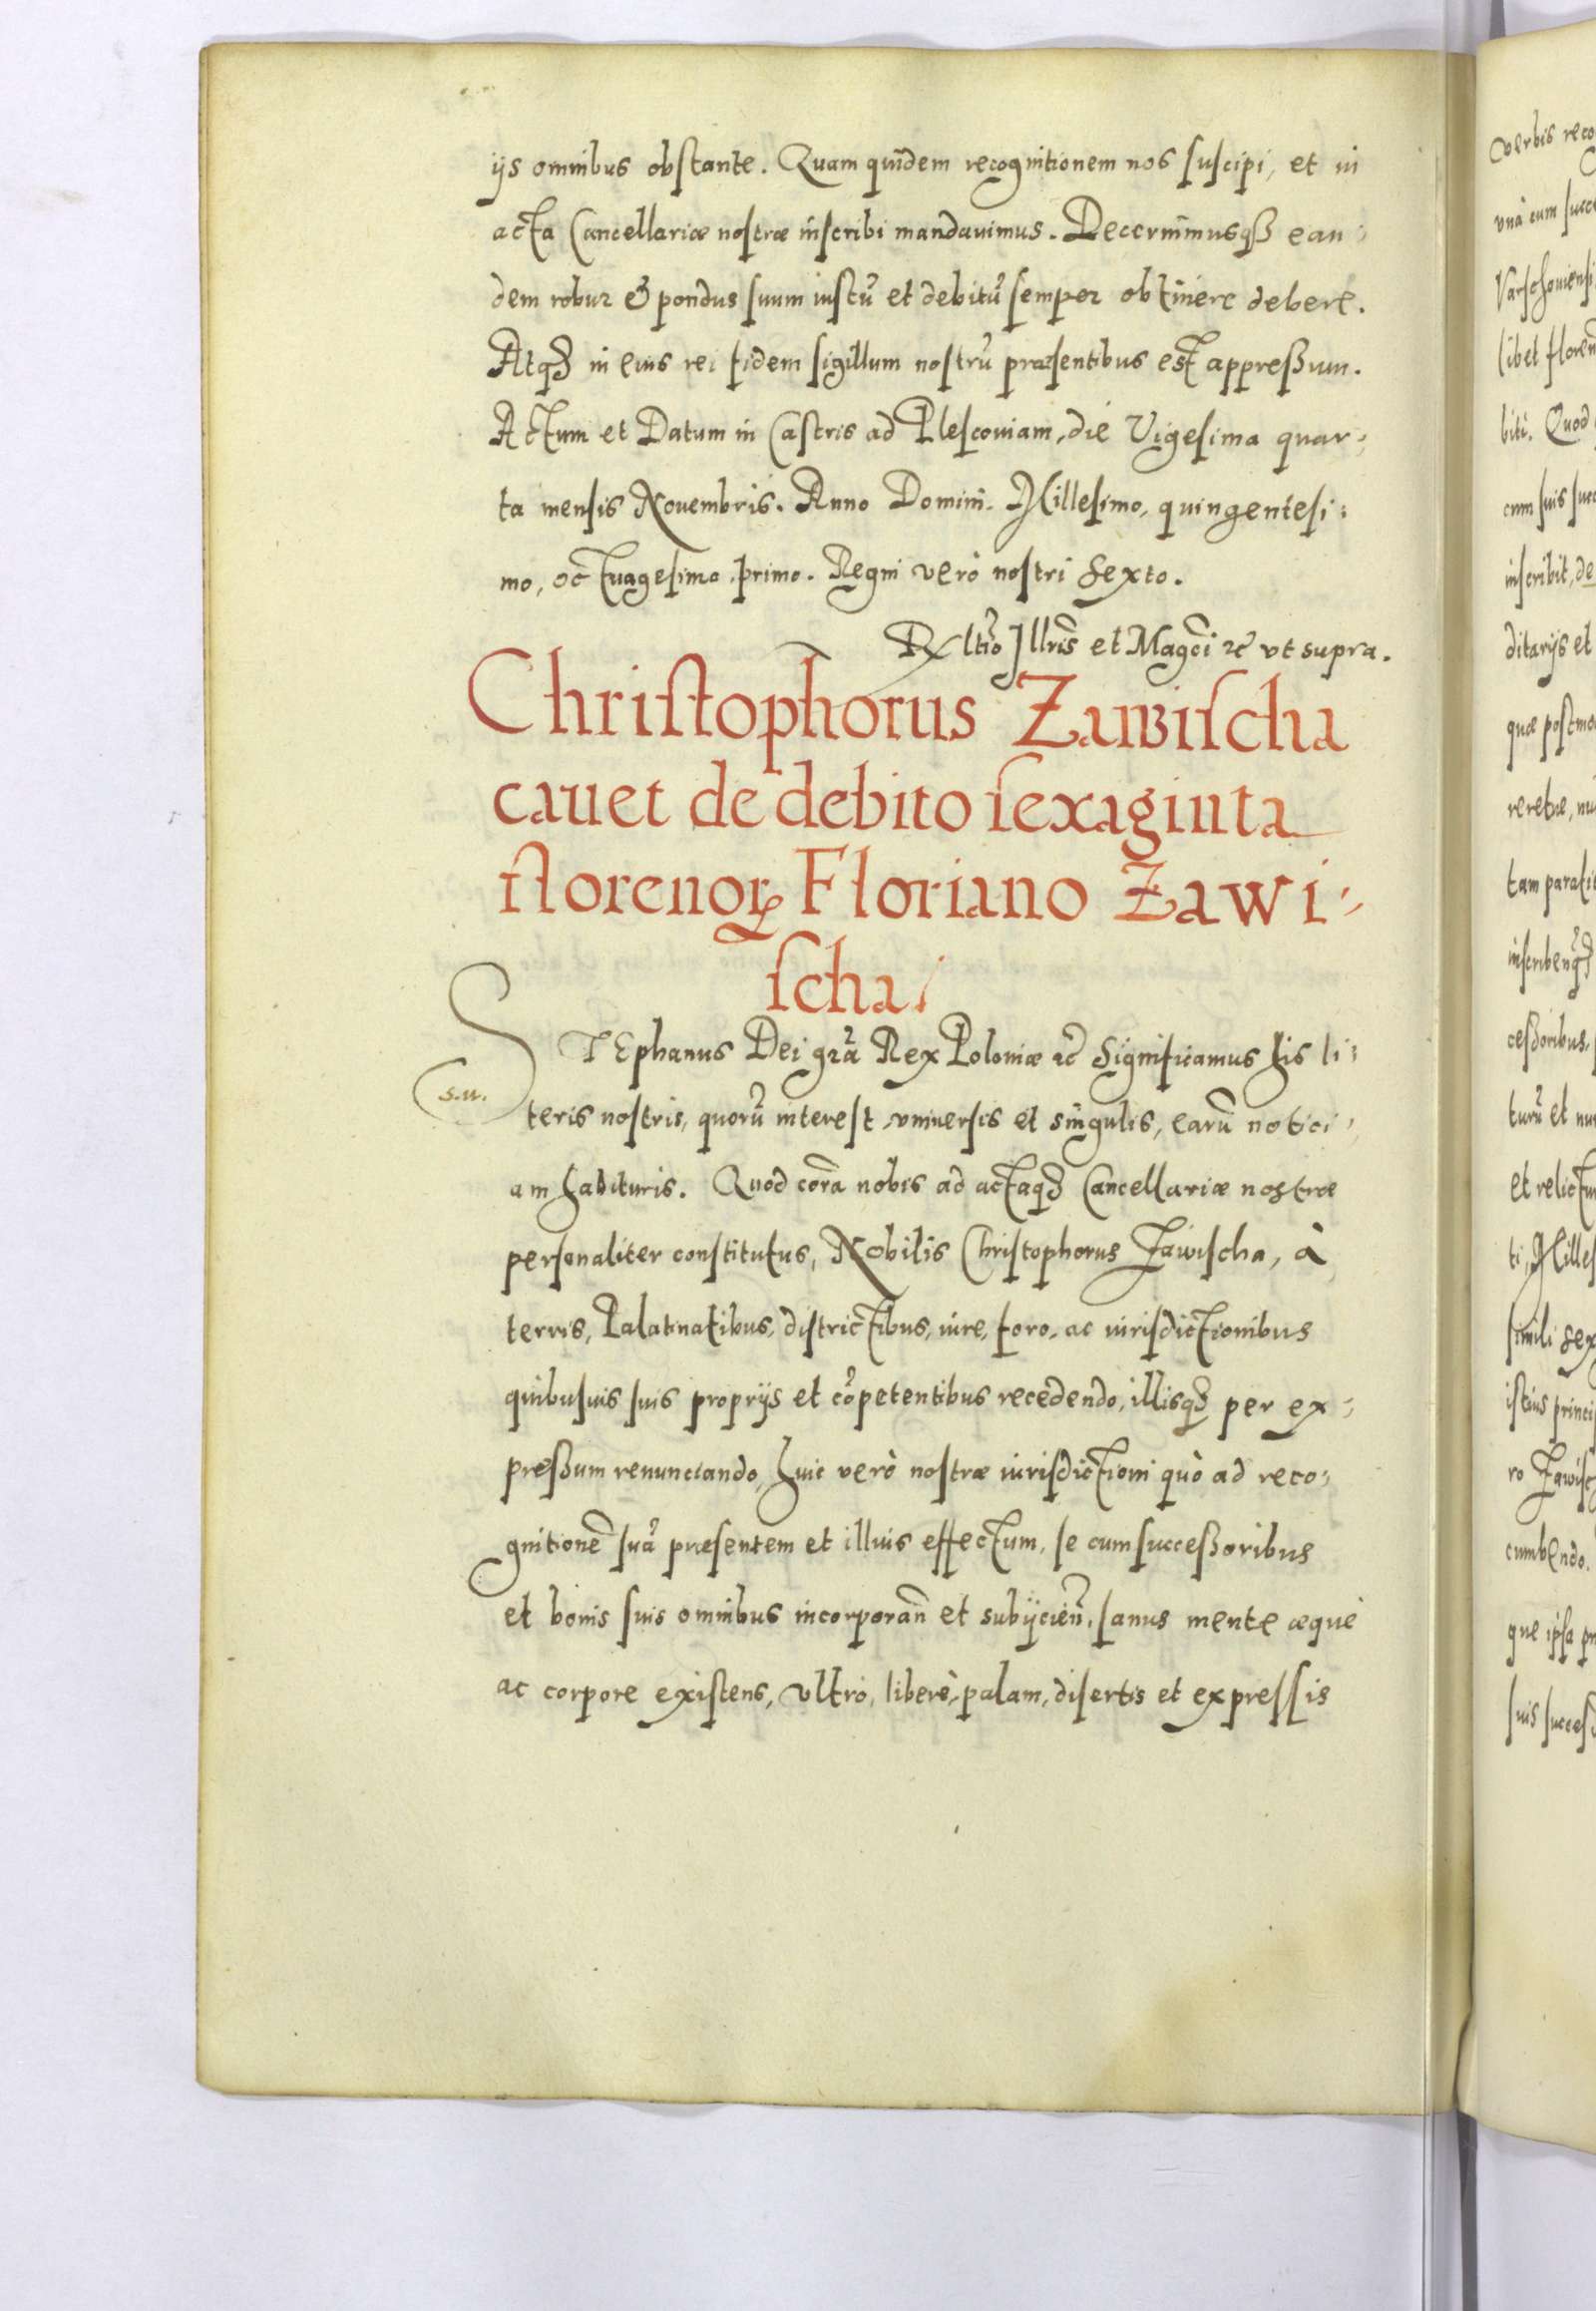 ijs omnibus obstante. Quam quidem recognitionem nos suscipi, et in
acta Cancellariæ nostræ inscribi mandauimus. Decernimusqß ean-
dem robur & pondus suum iustũ et debitũ semper obtinere debere.
Atqꝫ in eius rei fidem sigillum nostrũ præsentibus est appreßum.
Actum et Datum in Castris ad Plescouiam, die Vigesima quar-
ta mensis Nouembris. Anno Domini. Millesimo, quingentesi:
mo, octuagesimo primo. Regni verò nostri Sexto.
Rltĩo Jllrĩs et Magcĩ ꝛc̃ vt supra.
Christophorus Zawischa
cauet de debito sexaginta
florenoꝝ Floriano Zawi-
scha.
STEphanus Dei grã Rex Poloniæ ꝛc̃ Significamus his li:
s.u.
teris nostris, quorũ interest vniuersis et singulis, earũ notici-
am habituris. Quod corã nobis ad actaqꝫ Cancellariæ nostræ
personaliter constitutus, Nobilis Christophorus Zawischa, à
terris, Palatinatibus, districtibus, iure, foro, ac iurisdictionibus
quibusuis suis proprijs et cõpetentibus recedendo, illisqꝫ per ex-
preßum renunciando, huic verò nostræ iurisdictioni quò ad reco-
gnitionẽ suã præsentem et illius effectum, se cum succeßoribus
et bonis suis omnibus incorporañ et subijcieñ, sanus mente æquè
ac corpore existens, vltrò, liberè, palam, disertis et expressis
verbis reco
vnà cum succe
Varschouiensi
libet floren
biti. Quod
cum suis succ
inscribit, de
ditarijs et
quæ postmo
reretur, nu
tam parati
inscribenqꝫ
ceßoribus,
turũ et nu
et relictu
ti, Milles
simili sex
istius princi
ro Zawisc
cumbendo.
que ipsa pr
suis succeß